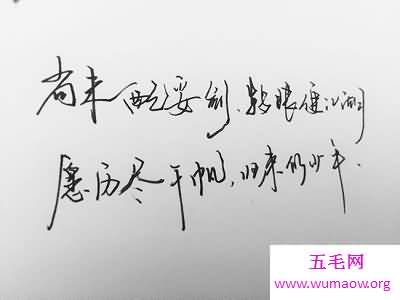 尚未配妥剑,转眼便江湖
愿历尽千帆,归来仍少年.
五毛网
www.wumaow.org